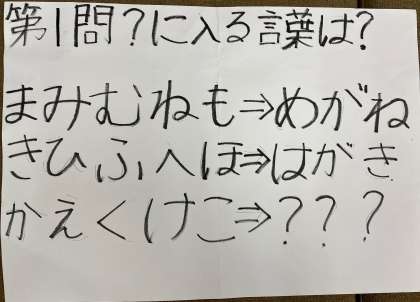 第1問?に入る言葉は?
まみむねも⇒めがね
きひふへほ⇒はがき
かえくけこ⇒???